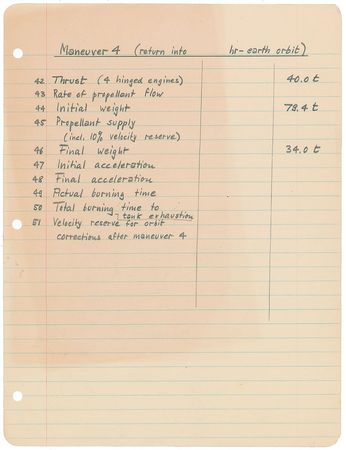 Maneuver 4 (return into hr-earth orbit)
42 Thrust (4 hinged engines) 40.0 t
43 Rate of propellant flow
44 Initial weight 79.4 t
45 Propellant supply
(incl. 10% velocity reserve)
46 Final weight 34.0 t
47 Initial acceleration
48 Final acceleration
49 Actual burning time
50 Total burning time to
tank exhaustion
51 Velocity reserve for orbit
corrections after maneuver 4